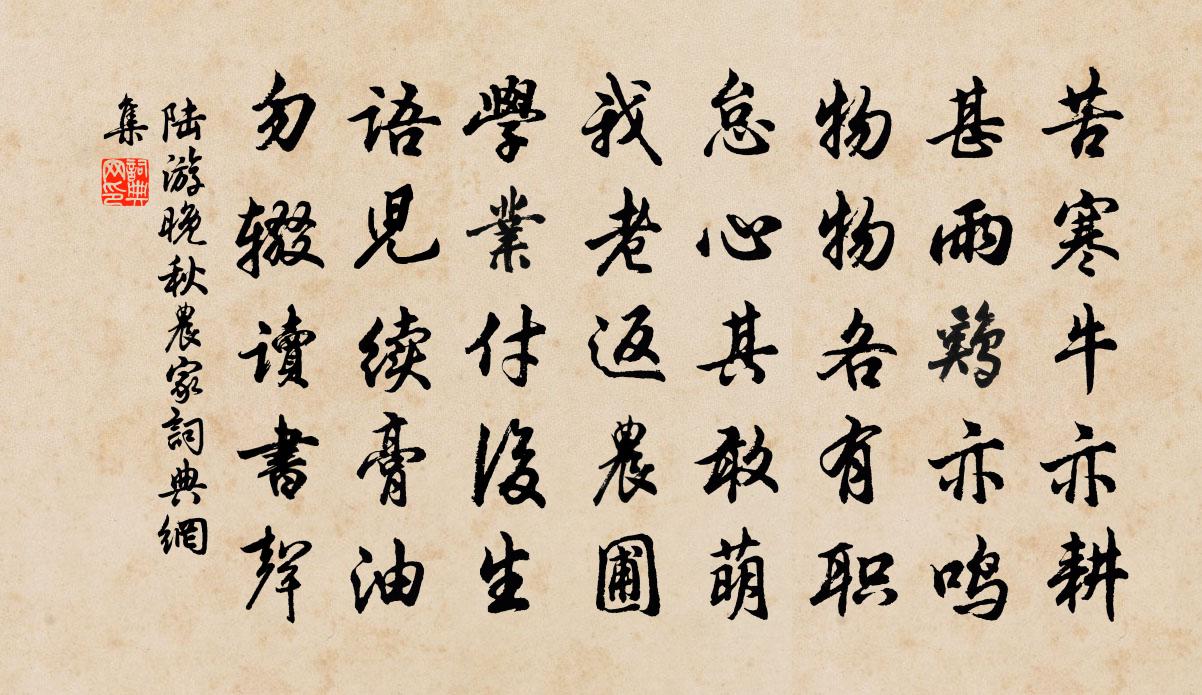 苦寒牛亦耕
甚雨鷄亦鸣
物物各有职
怠心其敢萌
我老返農圃
學業付後生
語児续膏油
勿辍讀書聲
陆游晚秋農家詞典網
集
詞典
网印